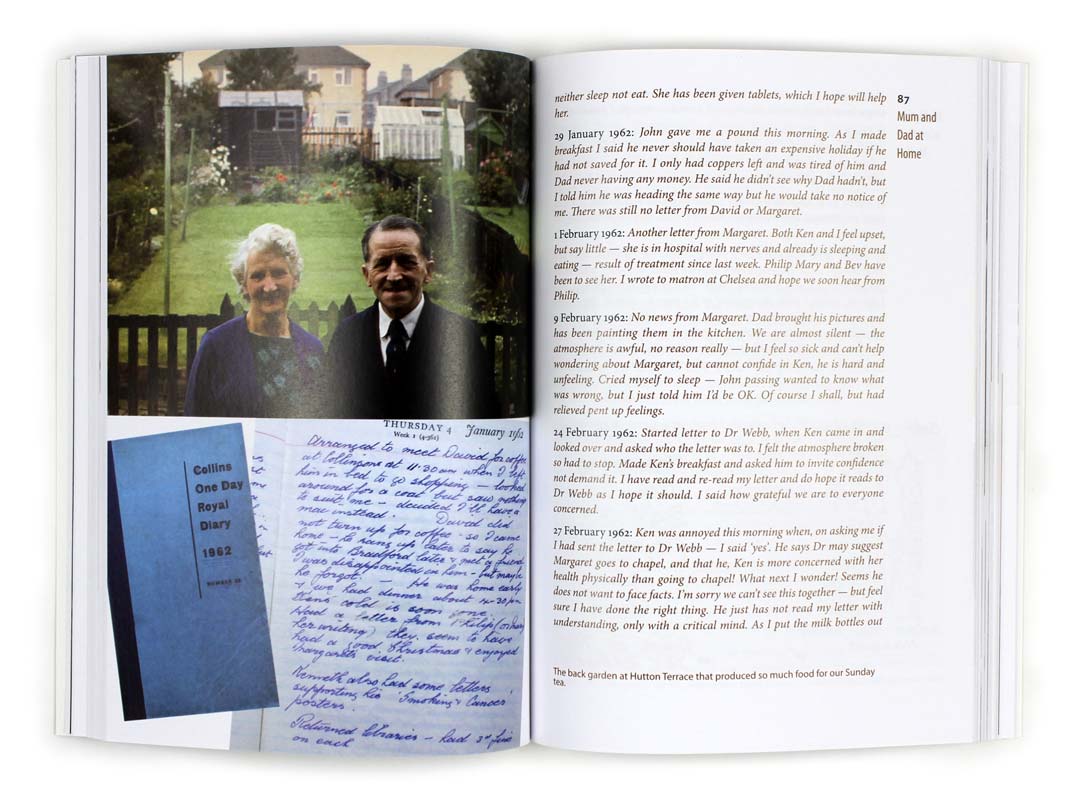 Collins
One Day
Royal
Diary
1962
THURSDAY 4 January 1962
Week 1 (4-361)
Arranged to meet David for coffee
at Collinsons at 11.30 am when I left
him in bed to go shopping — looked
around for a coat but saw nothing
to suit me — decided I'll have a
mac instead. David did
not turn up for coffee - so I came
home — he rang up later to say he
got into Bradford later & met a friend
I was disappointed in him - but maybe
he forgot. — He was home early
& we had dinner about
cold is soon gone.
Had a letter from Philip
her writing) they seem to have
had a good Christmas & enjoyed
Margaret's visit.
Kenneth also had some letters
supporting his 'Smoking & Cancer
posters.
Returned libraries — had 3d fine
on each
neither sleep not eat. She has been given tablets, which I hope will help
her.
29 January 1962: John gave me a pound this morning. As I made
breakfast I said he never should have taken an expensive holiday if he
had not saved for it. I only had coppers left and was tired of him and
Dad never having any money. He said he didn't see why Dad hadn't, but
I told him he was heading the same way but he would take no notice of
me. There was still no letter from David or Margaret.
1 February 1962: Another letter from Margaret. Both Ken and I feel upset,
but say little — she is in hospital with nerves and already is sleeping and
eating — result of treatment since last week. Philip Mary and Bev have
been to see her. I wrote to matron at Chelsea and hope we soon hear from
Philip.
9 February 1962: No news from Margaret. Dad brought his pictures and
has been painting them in the kitchen. We are almost silent — the
atmosphere is awful, no reason really — but I feel so sick and can't help
wondering about Margaret, but cannot confide in Ken, he is hard and
unfeeling. Cried myself to sleep — John passing wanted to know what
was wrong, but I just told him I'd be OK. Of course I shall, but had
relieved pent up feelings.
24 February 1962: Started letter to Dr Webb, when Ken came in and
looked over and asked who the letter was to. I felt the atmosphere broken
so had to stop. Made Ken's breakfast and asked him to invite confidence
not demand it. I have read and re-read my letter and do hope it reads to
Dr Webb as I hope it should. I said how grateful we are to everyone
concerned.
27 February 1962: Ken was annoyed this morning when, on asking me if
I had sent the letter to Dr Webb — I said 'yes'. He says Dr may suggest
Margaret goes to chapel, and that he, Ken is more concerned with her
health physically than going to chapel! What next I wonder! Seems he
does not want to face facts. I'm sorry we can't see this together — but feel
sure I have done the right thing. He just has not read my letter with
understanding, only with a critical mind. As I put the milk bottles out
The back garden at Hutton Terrace that produced so much food for our Sunday
tea.
87
Mum and
Dad at
Home